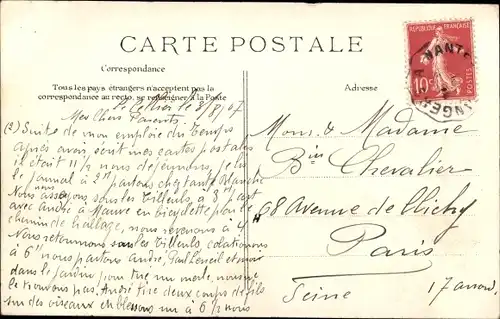 CARTE POSTALE
Correspondance
Tous les pays étrangers n'acceptent pas la
correspondance au recto, se renseigner à la Poste
Adresse
RÉPUBLIQUE FRANÇAISE
10c
POSTES
NANTE
ANGE
le 3/8/07
Mes Chers Parents
(2) Suite de mon emploie du temps
après avoir mes cartes postales
il était 11 1/2 nous déjeunons, je lis
le journal à 2h partons chez tante Blanche
Nous assoyons sous les tilleuls à 3h pars
avec André à Mauve en bicyclette par le
chemin de hallage, nous revenons à 4
Nous retournons sous les tilleuls, colationons
à 6h nous partons André, et moi
dans le jardin pour tiré un merle, nous ne
le trouvons pas. André tire deux coups de fusil
sur des oiseaux en blessons un à 6 1/2 nous
Mons. & Madame
Bien Chevalier
68 Avenue de Clichy
Paris
Seine 17 arrond.